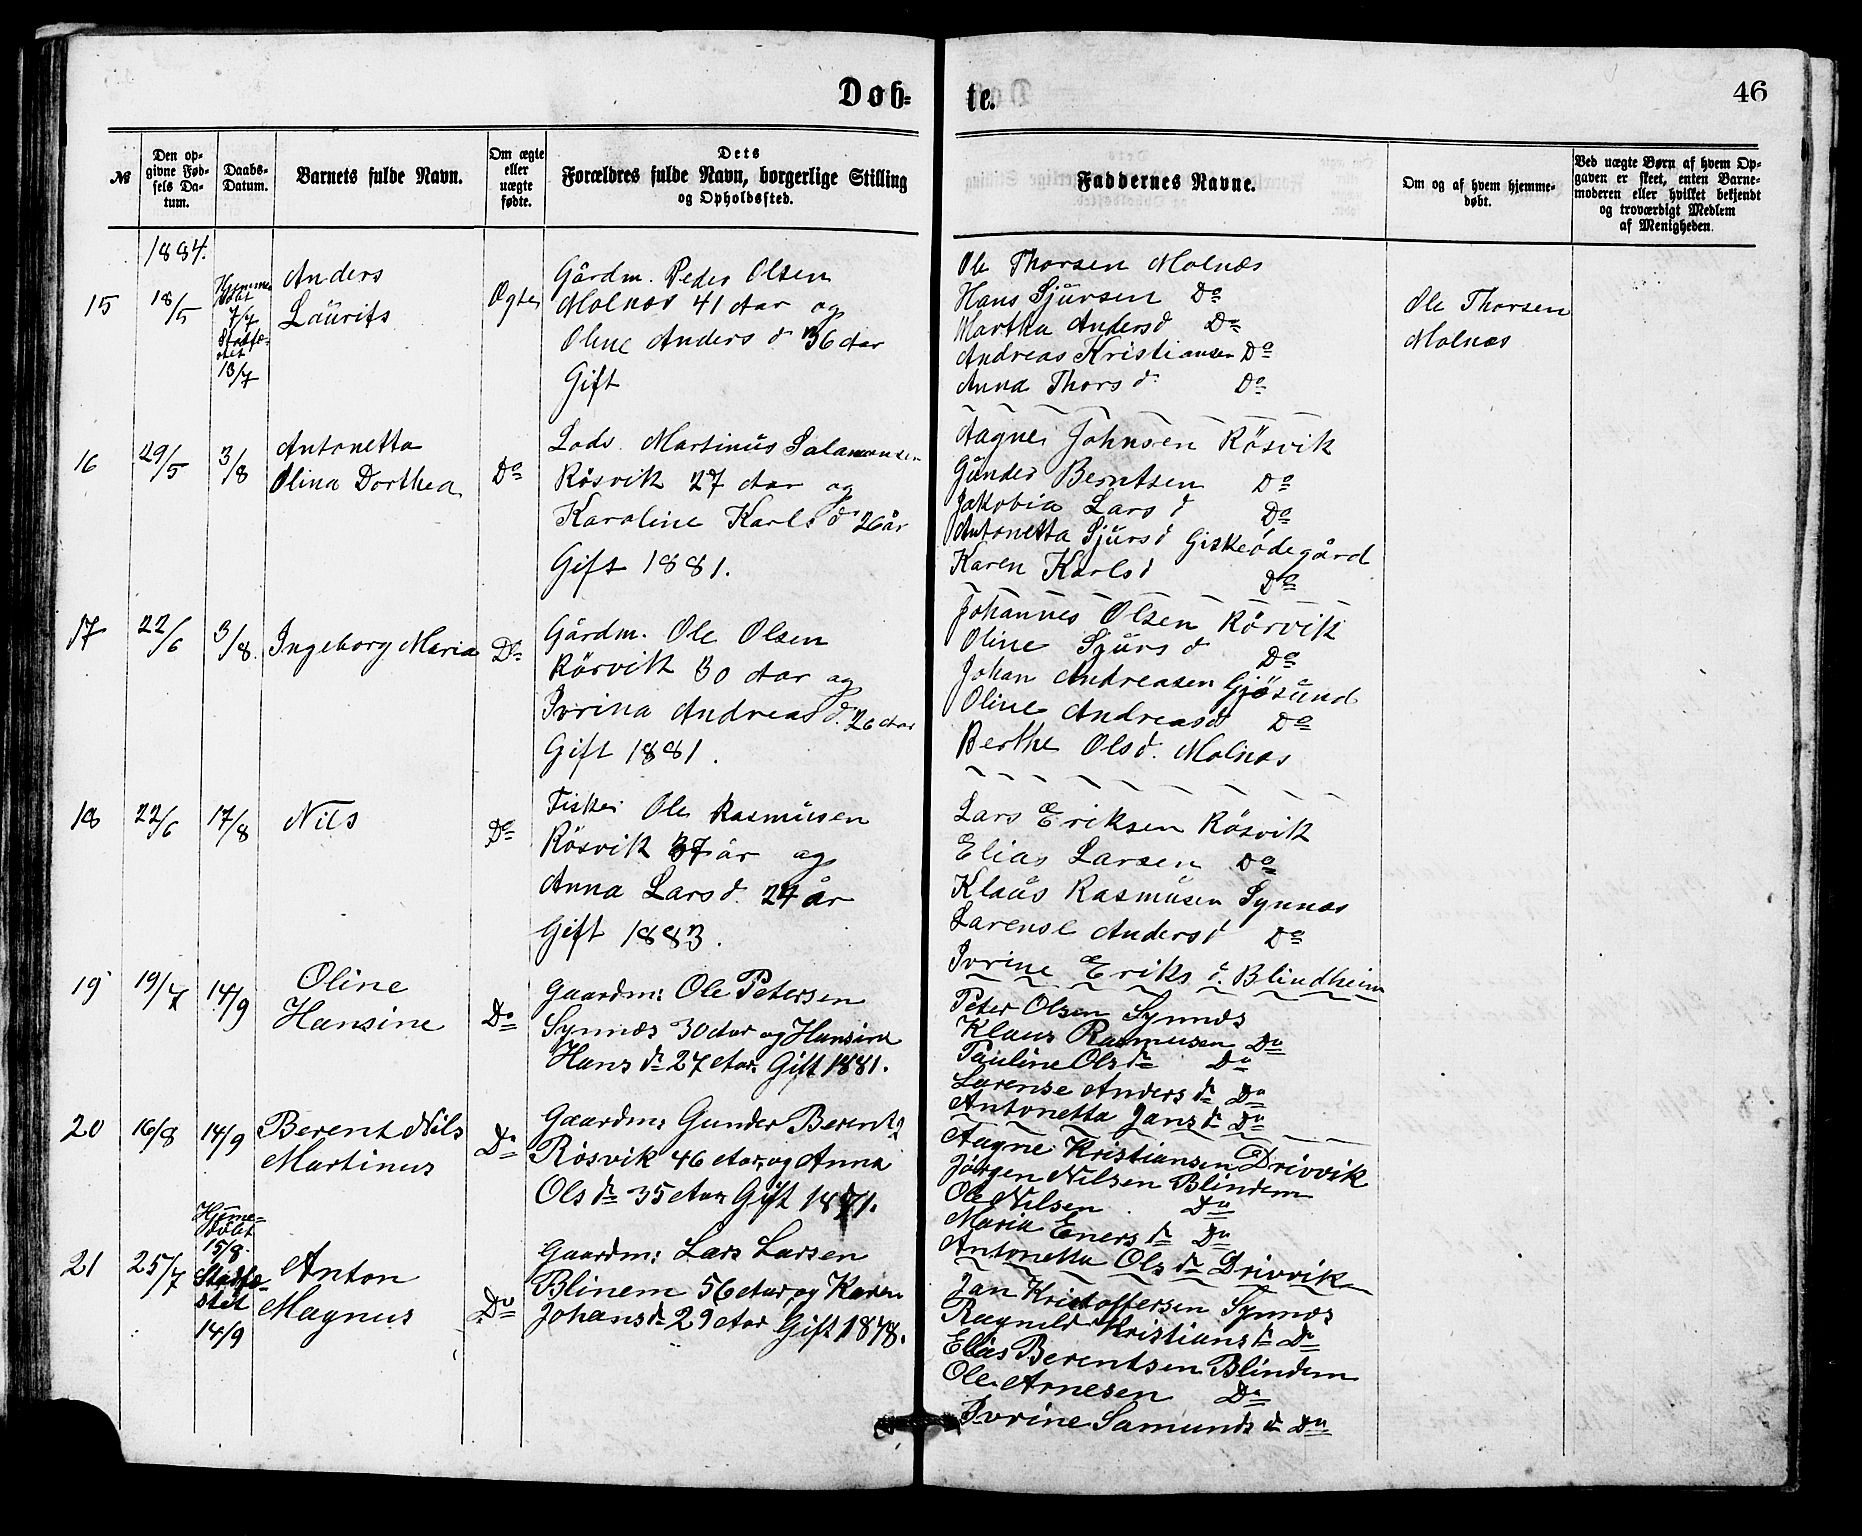 Døb-
te.
46
№
Den op-
givne Fød-
sels Da-
tum.
Daabs-
Datum.
Barnets fulde Navn.
Om ægte
eller
uægte
fødte.
Dets
Forældres fulde Navn, borgerlige Stilling
og Opholdssted.
Faddernes Navne.
Om og af hvem hjemme-
døbt.
Ved uægte Børn af hvem Op-
gaven er skeet, enten Barne-
moderen eller hvilket bekjendt
og troværdigt Medlem
af Menigheden.
1884.
15
18/5
Hjemme
døbt
7/7
Stadfæ-
stet
13/7
Anders
Laurits
Ægte
Gårdm. Peder Olsen
Molnæs 41 Aar og
Oline Anders d 36 Aar
Gift
Ole Thorsen Molnæs
Hans Sjursen Do
Martha Andersd Do
Andreas Kristiansen Do
Anna Thors d Do
Ole Thorsen
Molnæs
16
29/5
3/8
Antonetta
Olina Dorthea
Do
Lods Martinus Salamonsen
Rösvik 27 Aar og
Karoline Karls d 26 år
Gift 1881.
Aagne Johnsen Rösvik
Gunder Berntsen Do
Jakobia Lars d Do
Antonetta Sjurs d Giskeødegård
Karen Karlsd Do
17
22/6
3/8
Ingeborg Maria
Do
Gårdm. Ole Olsen
Rörvik 30 Aar og
Ivrina Andreas d. 26 Aar
Gift 1881.
Johannes Olsen Rörvik
Oline Sjurs d Do
Johan Andreasen Gjösund
Oline Andreasd Do
Berthe Olsd. Molnæs
18
22/6
17/8
Nils
Do
Fisker Ole Rasmusen
Rösvik 37 år og
Anna Lars d. 24 år
Gift 1883.
Lars Eriksen Rösvik
Elias Larsen Do
Klaus Rasmusen Synnæs
Larense Anders d Do
Ivrine Eriks d. Blindheim
19
19/7
14/9
Oline
Hansine
Do
Gaardm: Ole Petersen
Synnæs 30 Aar og Hansine
Hans dr 27 Aar Gift 1881.
Peter Olsen Synnæs
Klaus Rasmusen Do
Pauline Ols dr Do
Larense Anders dr Do
Antonetta Jans dr Do
20
16/8
14/9
Berent Nils
Martinus
Do
Gaardm: Gunder Berents
Rösvik 46 Aar, og Anna
Ols dr 35 Aar Gift 1871.
Aagne Kristiansen Drivvik
Jörgen Nilsen Blindem
Ole Nilsen Do
Maria Eners dr Do
Antonetta Ols dr Drivvik
21
25/7
Hjeme-
døbt
15/8
Stadfæ-
stet
14/9
Anton
Magnus
Do
Gaardm: Lars Larsen
Blinem 56 Aar, og Karen
Johans dr 29 Aar Gift 1878.
Jan Kristoffersen Synnæs
Ragnild Kristians dr Do
Elias Berentsen Blindem
Ole Arnesen Do
Ivrine Samunds dr Do